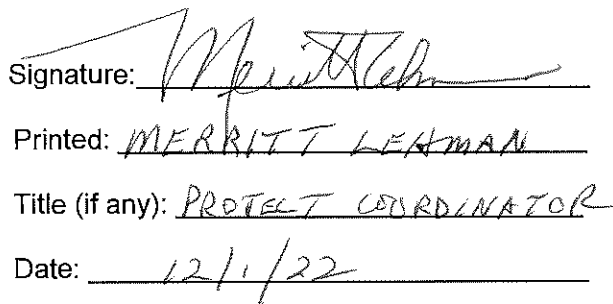 Signature: Merritt Lehman
Printed: MERRITT LEHMAN
Title (if any): PROTECT COORDINATOR
Date: 12/1/22